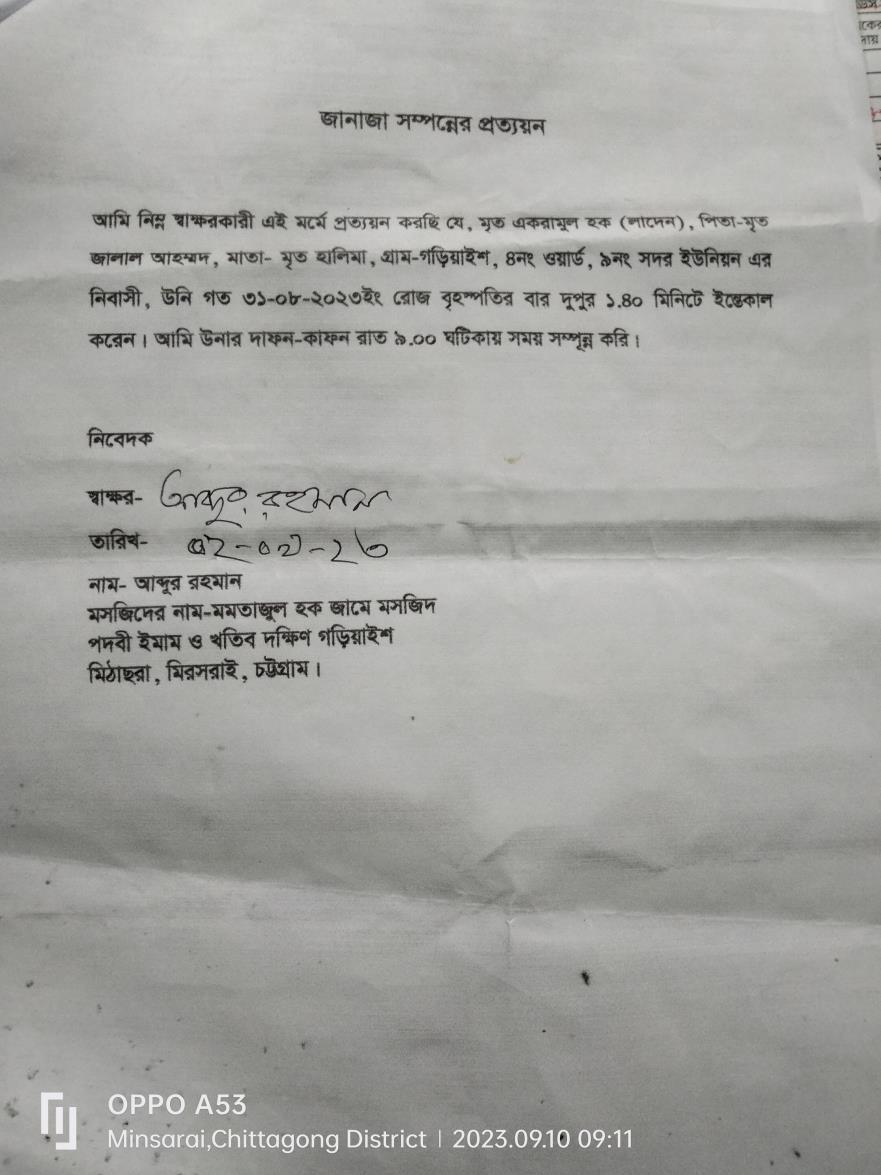 জানাজা সম্পন্নের প্রত্যয়ন
আমি নিম্ন স্বাক্ষরকারী এই মর্মে প্রত্যয়ন করছি যে, মৃত একরামুল হক (লাদেন), পিতা-মৃত
জালাল আহম্মদ, মাতা- মৃত হালিমা, গ্রাম-গড়িয়াইশ, ৪নং ওয়ার্ড, ৯নং সদর ইউনিয়ন এর
নিবাসী, উনি গত ৩১-০৮-২০২৩ইং রোজ বৃহস্পতির বার দুপুর ১.৪০ মিনিটে ইন্তেকাল
করেন। আমি উনার দাফন-কাফন রাত ৯.০০ ঘটিকায় সময় সম্পূন্ন করি।
নিবেদক
স্বাক্ষর- রহমান
তারিখ-
নাম- আব্দুর রহমান
মসজিদের নাম-মমতাজুল হক জামে মসজিদ
পদবী ইমাম ও খতিব দক্ষিণ গড়িয়াইশ
মিঠাছরা, মিরসরাই, চট্টগ্রাম।
OPPO A53
Minsarai,Chittagong District | 2023.09.10 09:11